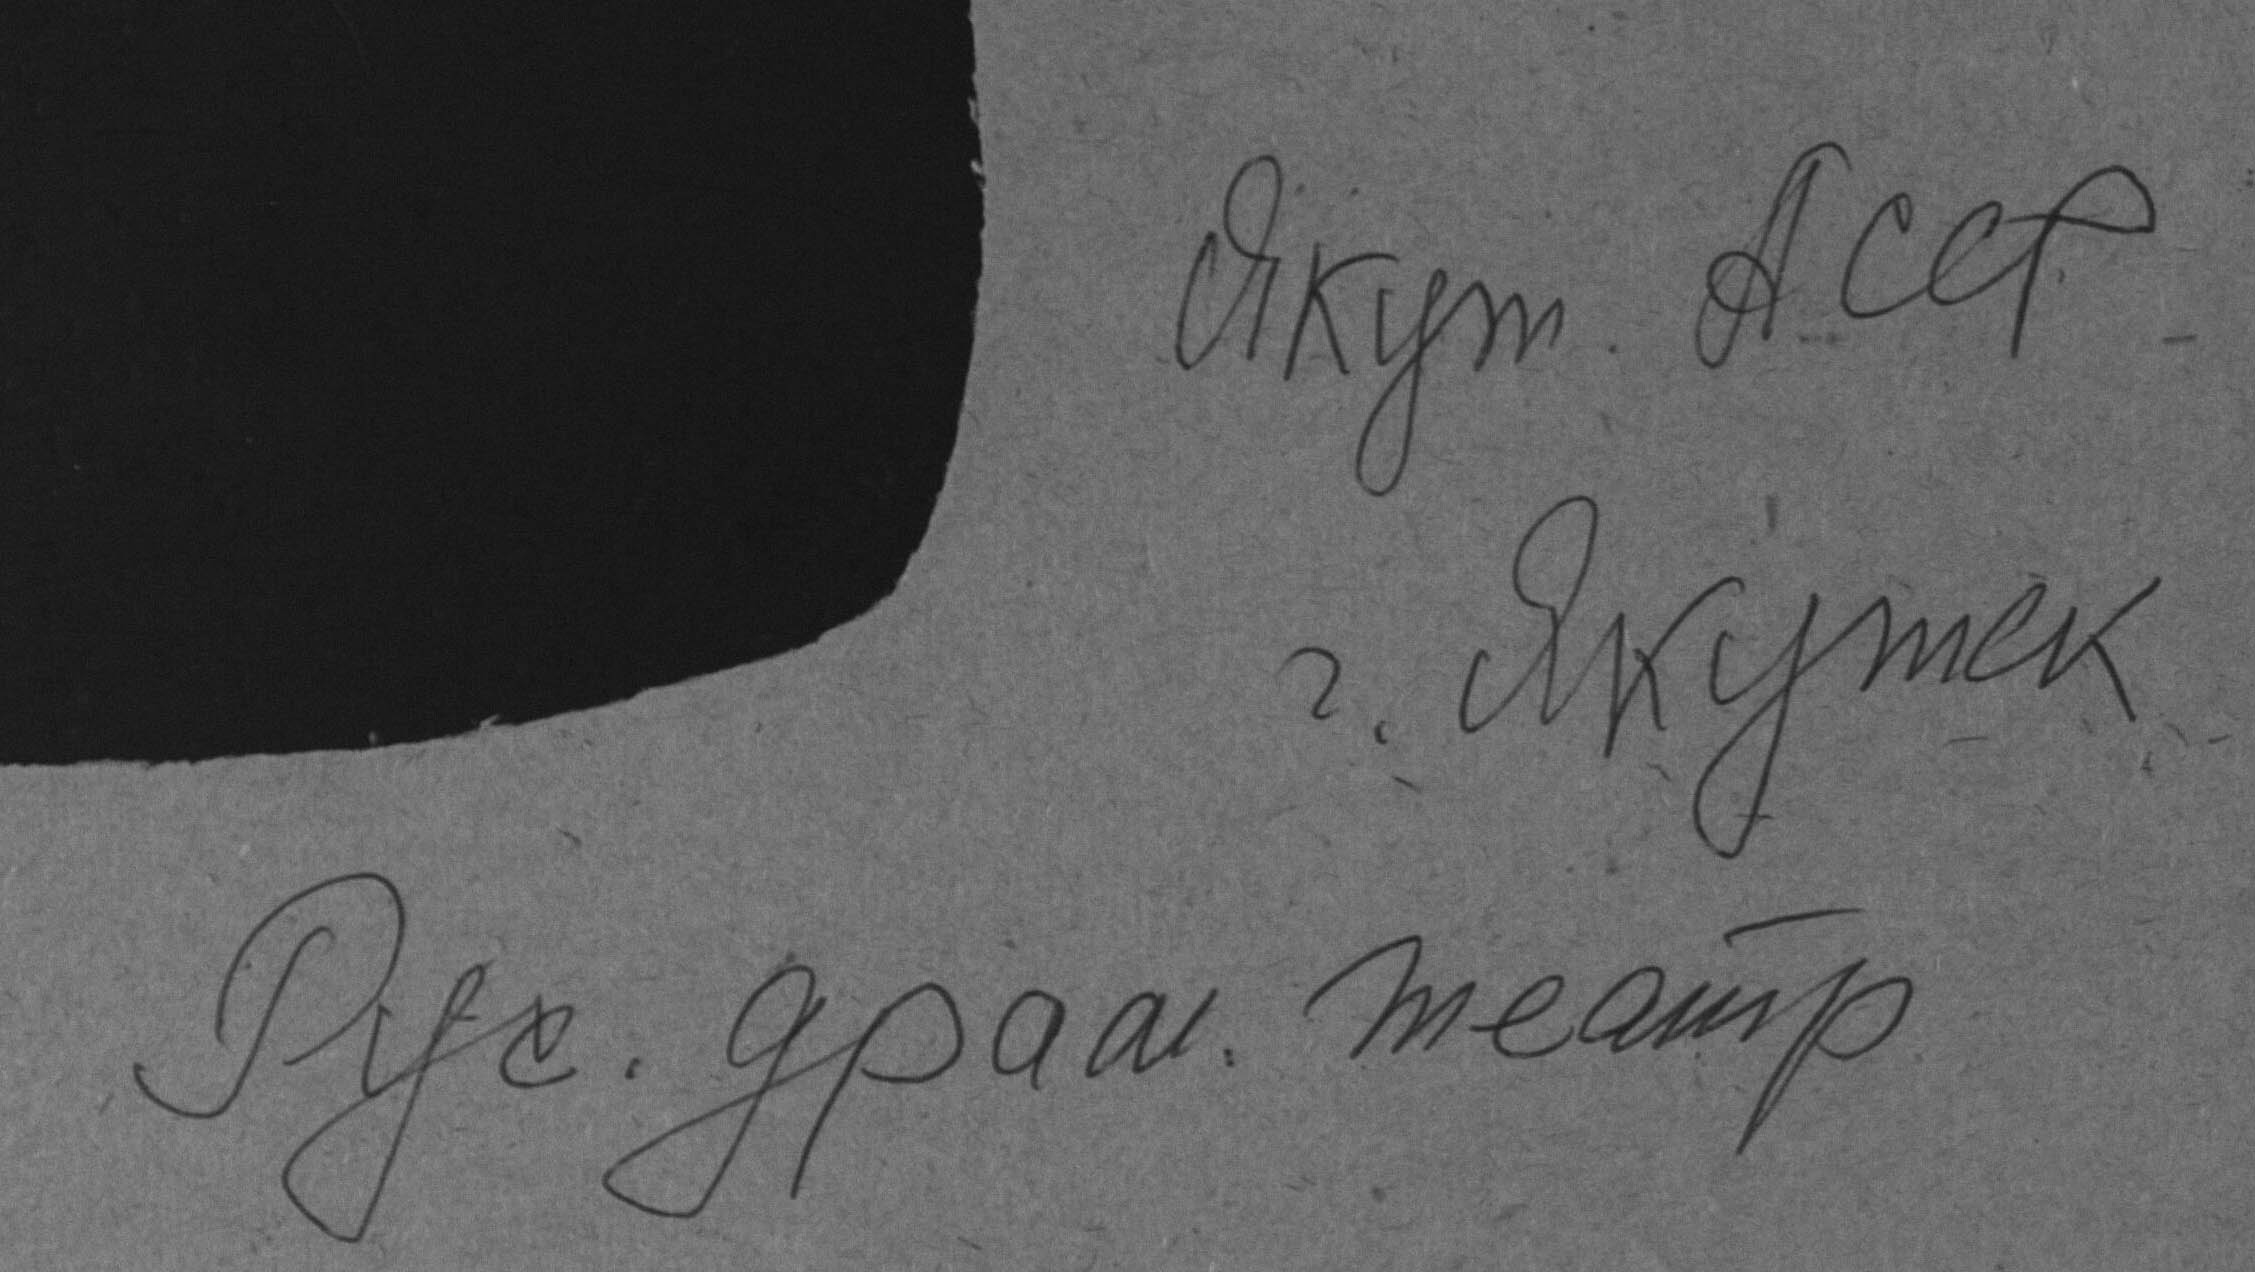 Якут. АССР
г. Якутск
Рус. драм. театр